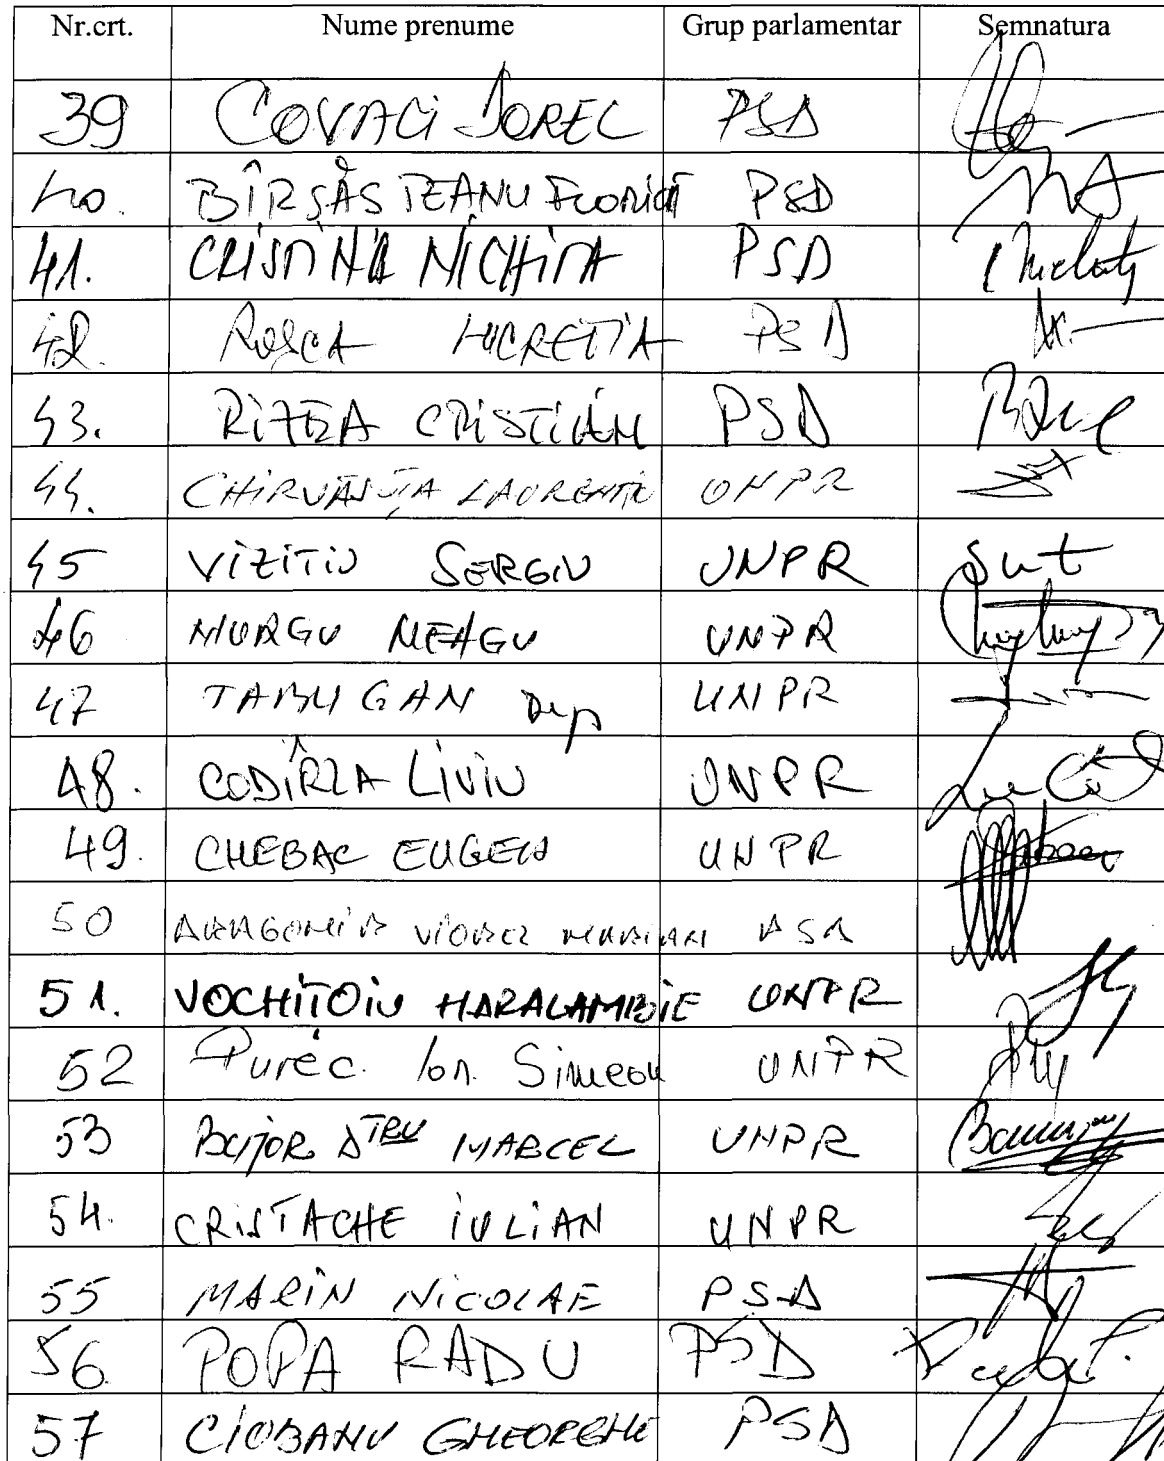 Nr.crt. Nume prenume Grup parlamentar Semnatura
39 COVACI DOREL PSD
40. BÎRSĂSTEANU FLORICĂ PSD
41. CRISTINA NICHITA PSD
42. ROȘCA LUCREȚIA PSD
43. RIZEA CRISTIAN PSD
44. CHIRVĂSUȚA LAURENȚIU UNPR
45 VIZITIU SERGIU UNPR
46 MURGU NEAGU UNPR
47 TABUGAN Dep UNPR
48. CODÎRLĂ LIVIU UNPR
49. CHEBAC EUGEN UNPR
50 DRAGOMIR VIOREL MARIAN PSD
51. VOCHIȚOIU HARALAMBIE UNPR
52 Purec Ion Simeon UNPR
53 BUJOR DTRU MARCEL UNPR
54. CRISTACHE IULIAN UNPR
55 MARIN NICOLAE PSD
56 POPA RADU PSD
57 CIOBANU GHEORGHE PSD